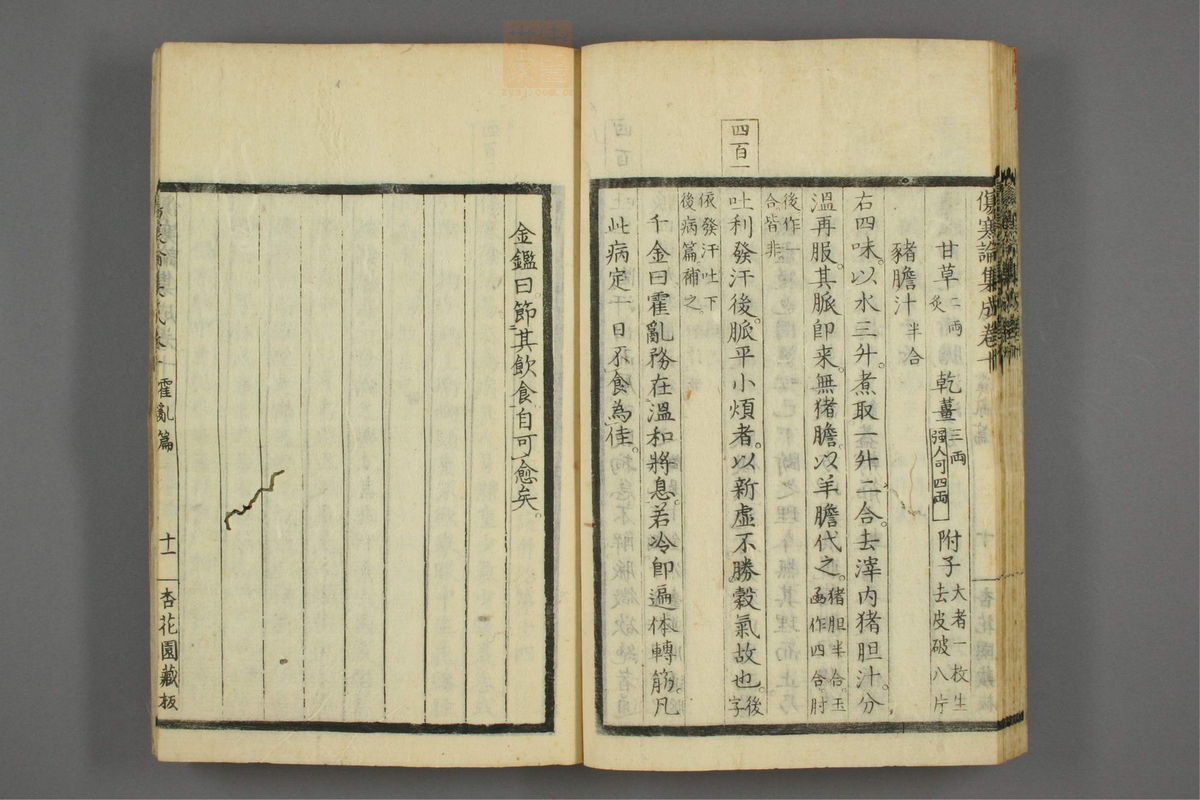 傷寒論集成卷十
甘草二兩炙 乾薑三兩強人可四兩 附子大者一枚生去皮破八片
豬膽汁半合
右四味。以水三升。煮取一升二合。去滓內猪胆汁。分
溫再服。其脈卽来。無猪膽。以羊膽代之。猪胆半合。玉函作四合。肘
後作一合皆非
四百一
吐利發汗後。脈平小煩者。以新虛不勝穀氣故也。後字
依發汗吐下後病篇補之
千金曰霍亂務在溫和將息。若冷卽遍体轉筋。凡
此病定一日不食為佳。
金鑑曰。節其飲食自可愈矣。
霍亂篇
十一
杏花園藏板